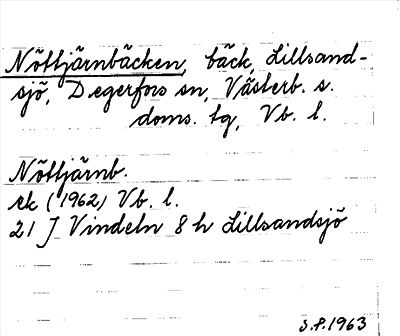 Nöttjärnbäcken, bäck, Lillsand-
sjö, Degerfors sn, Västerb. s.
doms. tg, Vb. l.
Nöttjärnb.
rk (1962) Vb. l.
21 J Vindeln 8 h Lillsandsjö
S.P. 1963